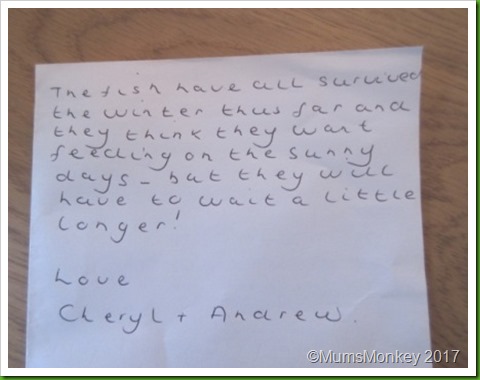 The fish have all survived
the winter thus far and
they think they want
feeding on the sunny
days - but they will
have to wait a little
longer!
Love
Cheryl + Andrew.
©MumsMonkey 2017